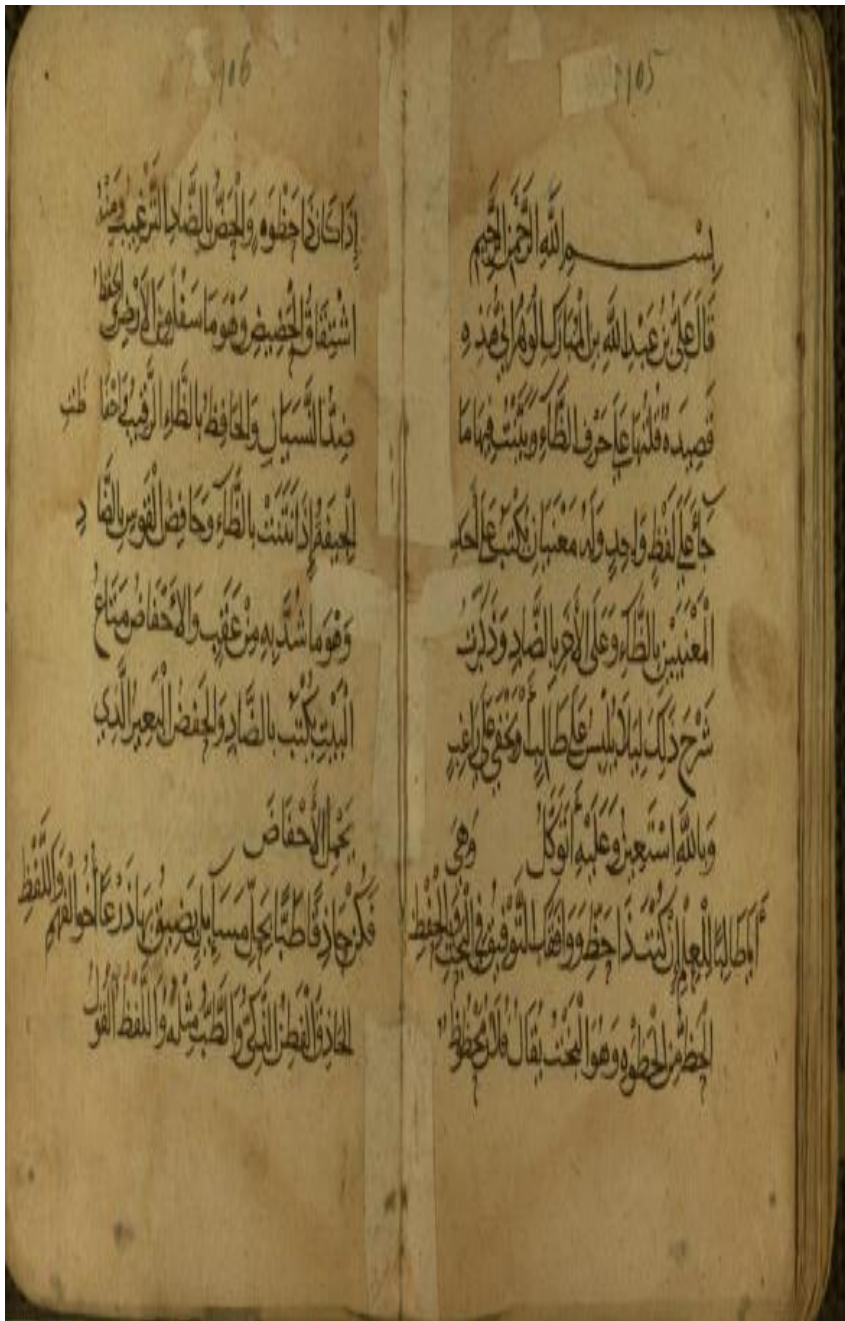 105
بِسْمِ اللهِ الرَّحْمَنِ الرَّحِيمِ
قَالَ عَلِيُّ بْنُ عَبْدِ اللهِ بْنِ الْمُبَارَكِ الْوَهْرَانِيُّ هَذِهِ
قَصِيدَةٌ قُلْتُهَا عَلَى حَرْفِ الظَّاءِ وَبَيَّنْتُ فِيهَا مَا
جَاءَ عَلَى لَفْظٍ وَاحِدٍ وَلَهُ مَعْنَيَانِ يُكْتَبُ عَلَى أَحَدِ
الْمَعْنَيَيْنِ بِالظَّاءِ وَعَلَى الْأَخَرِ بِالضَّادِ وَذَكَرْتُ
شَرْحَ ذَلِكَ لِيَلَا يَلْبِسَ عَلَى طَالِبٍ أَوْ يَخْفَى عَلَى رَاغِبٍ
وَبِاللهِ اسْتَعِينُ وَعَلَيْهِ أَتَوَكَّلُ وَهِيَ
أَيَا طَالِبًا لِلْعِلْمِ إِنْ كُنْتَ ذَا حَظٍّ وَوَافَقَكَ التَّوْفِيقُ فِي الْبَحْثِ وَالْحِفْظِ
الْحَظُّ مِنَ الْحُظْوَةِ وَهُوَ الْبَخْتُ يُقَالُ فُلَانٌ مَحْظُوظٌ
106
إِذَا كَانَ ذَا حَظْوَةٍ وَالْحَضُّ بِالضَّادِ التَّرْغِيبُ وَمِنْهُ
اشْتِقَاقُ الْحَضِيضِ وَهُوَ مَا سَفُلَ مِنَ الْأَرْضِ وَالْحِفْظُ
ضِدُّ النِّسْيَانِ وَالْحَافِظُ بِالظَّاءِ الرَّقِيبُ
الْجِيفَةُ إِذَا نَتَنَتْ بِالظَّاءِ وَحَافِضُ الْقَوْسِ بِالضَّادِ
وَهُوَ مَا شُدَّ بِهِ مِنْ عَقَبٍ وَالْأَحْفَاضُ مَتَاعُ
الْبَيْتِ يُكْتَبُ بِالضَّادِ وَالْحَفَضُ الْبَعِيرُ الَّذِي
يَحْمِلُ الْأَحْفَاضَ
فَكُنْ حَاذِقًا طَبًّا بِحَلِّ مَسَايِلٍ يَضِيقُ بِهَا ذَرْعًا أَخُو الْفَهْمِ وَاللَّفْظِ
الْحَاذِقُ الْفَطِنُ الذَّكِيُّ وَالطَّبُّ مِثْلُهُ وَاللَّفْظُ الْقَوْلُ